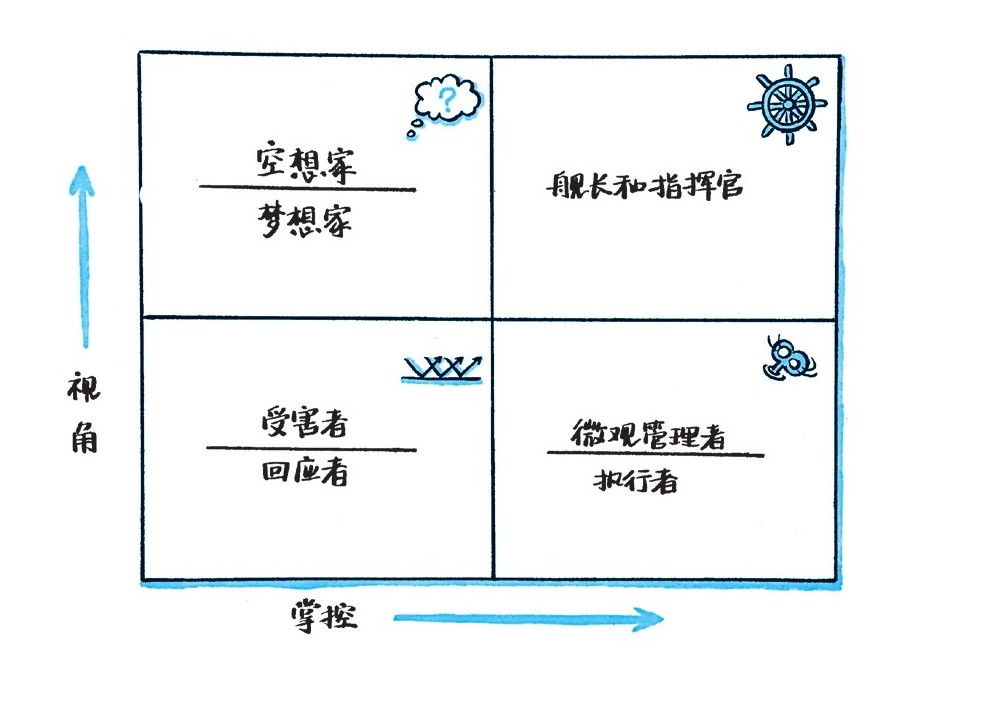 ?
空想家
梦想家
舰长和指挥官
视角
受害者
回应者
微观管理者
执行者
掌控